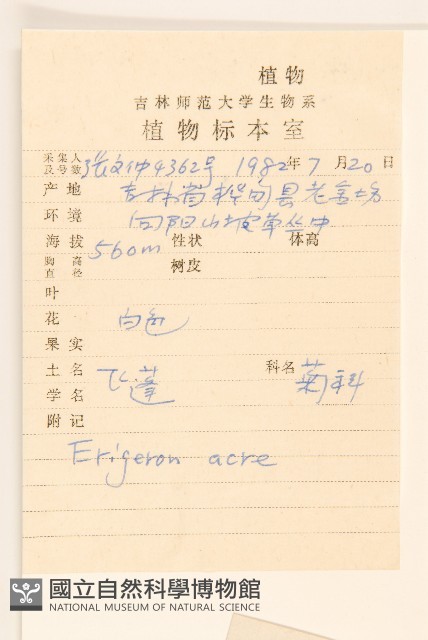 植物
吉林师范大学生物系
植物标本室
采集人及号数 张文仲4362号 1982年7月20日
产地 吉林省桦甸县老金场
环境 向阳山坡草丛中
海拔 560m 性状 体高
胸高直径 树皮
叶
花 白色
果实
土名 飞蓬 科名 菊科
学名
附记
Erigeron acre
國立自然科學博物館
NATIONAL MUSEUM OF NATURAL SCIENCE